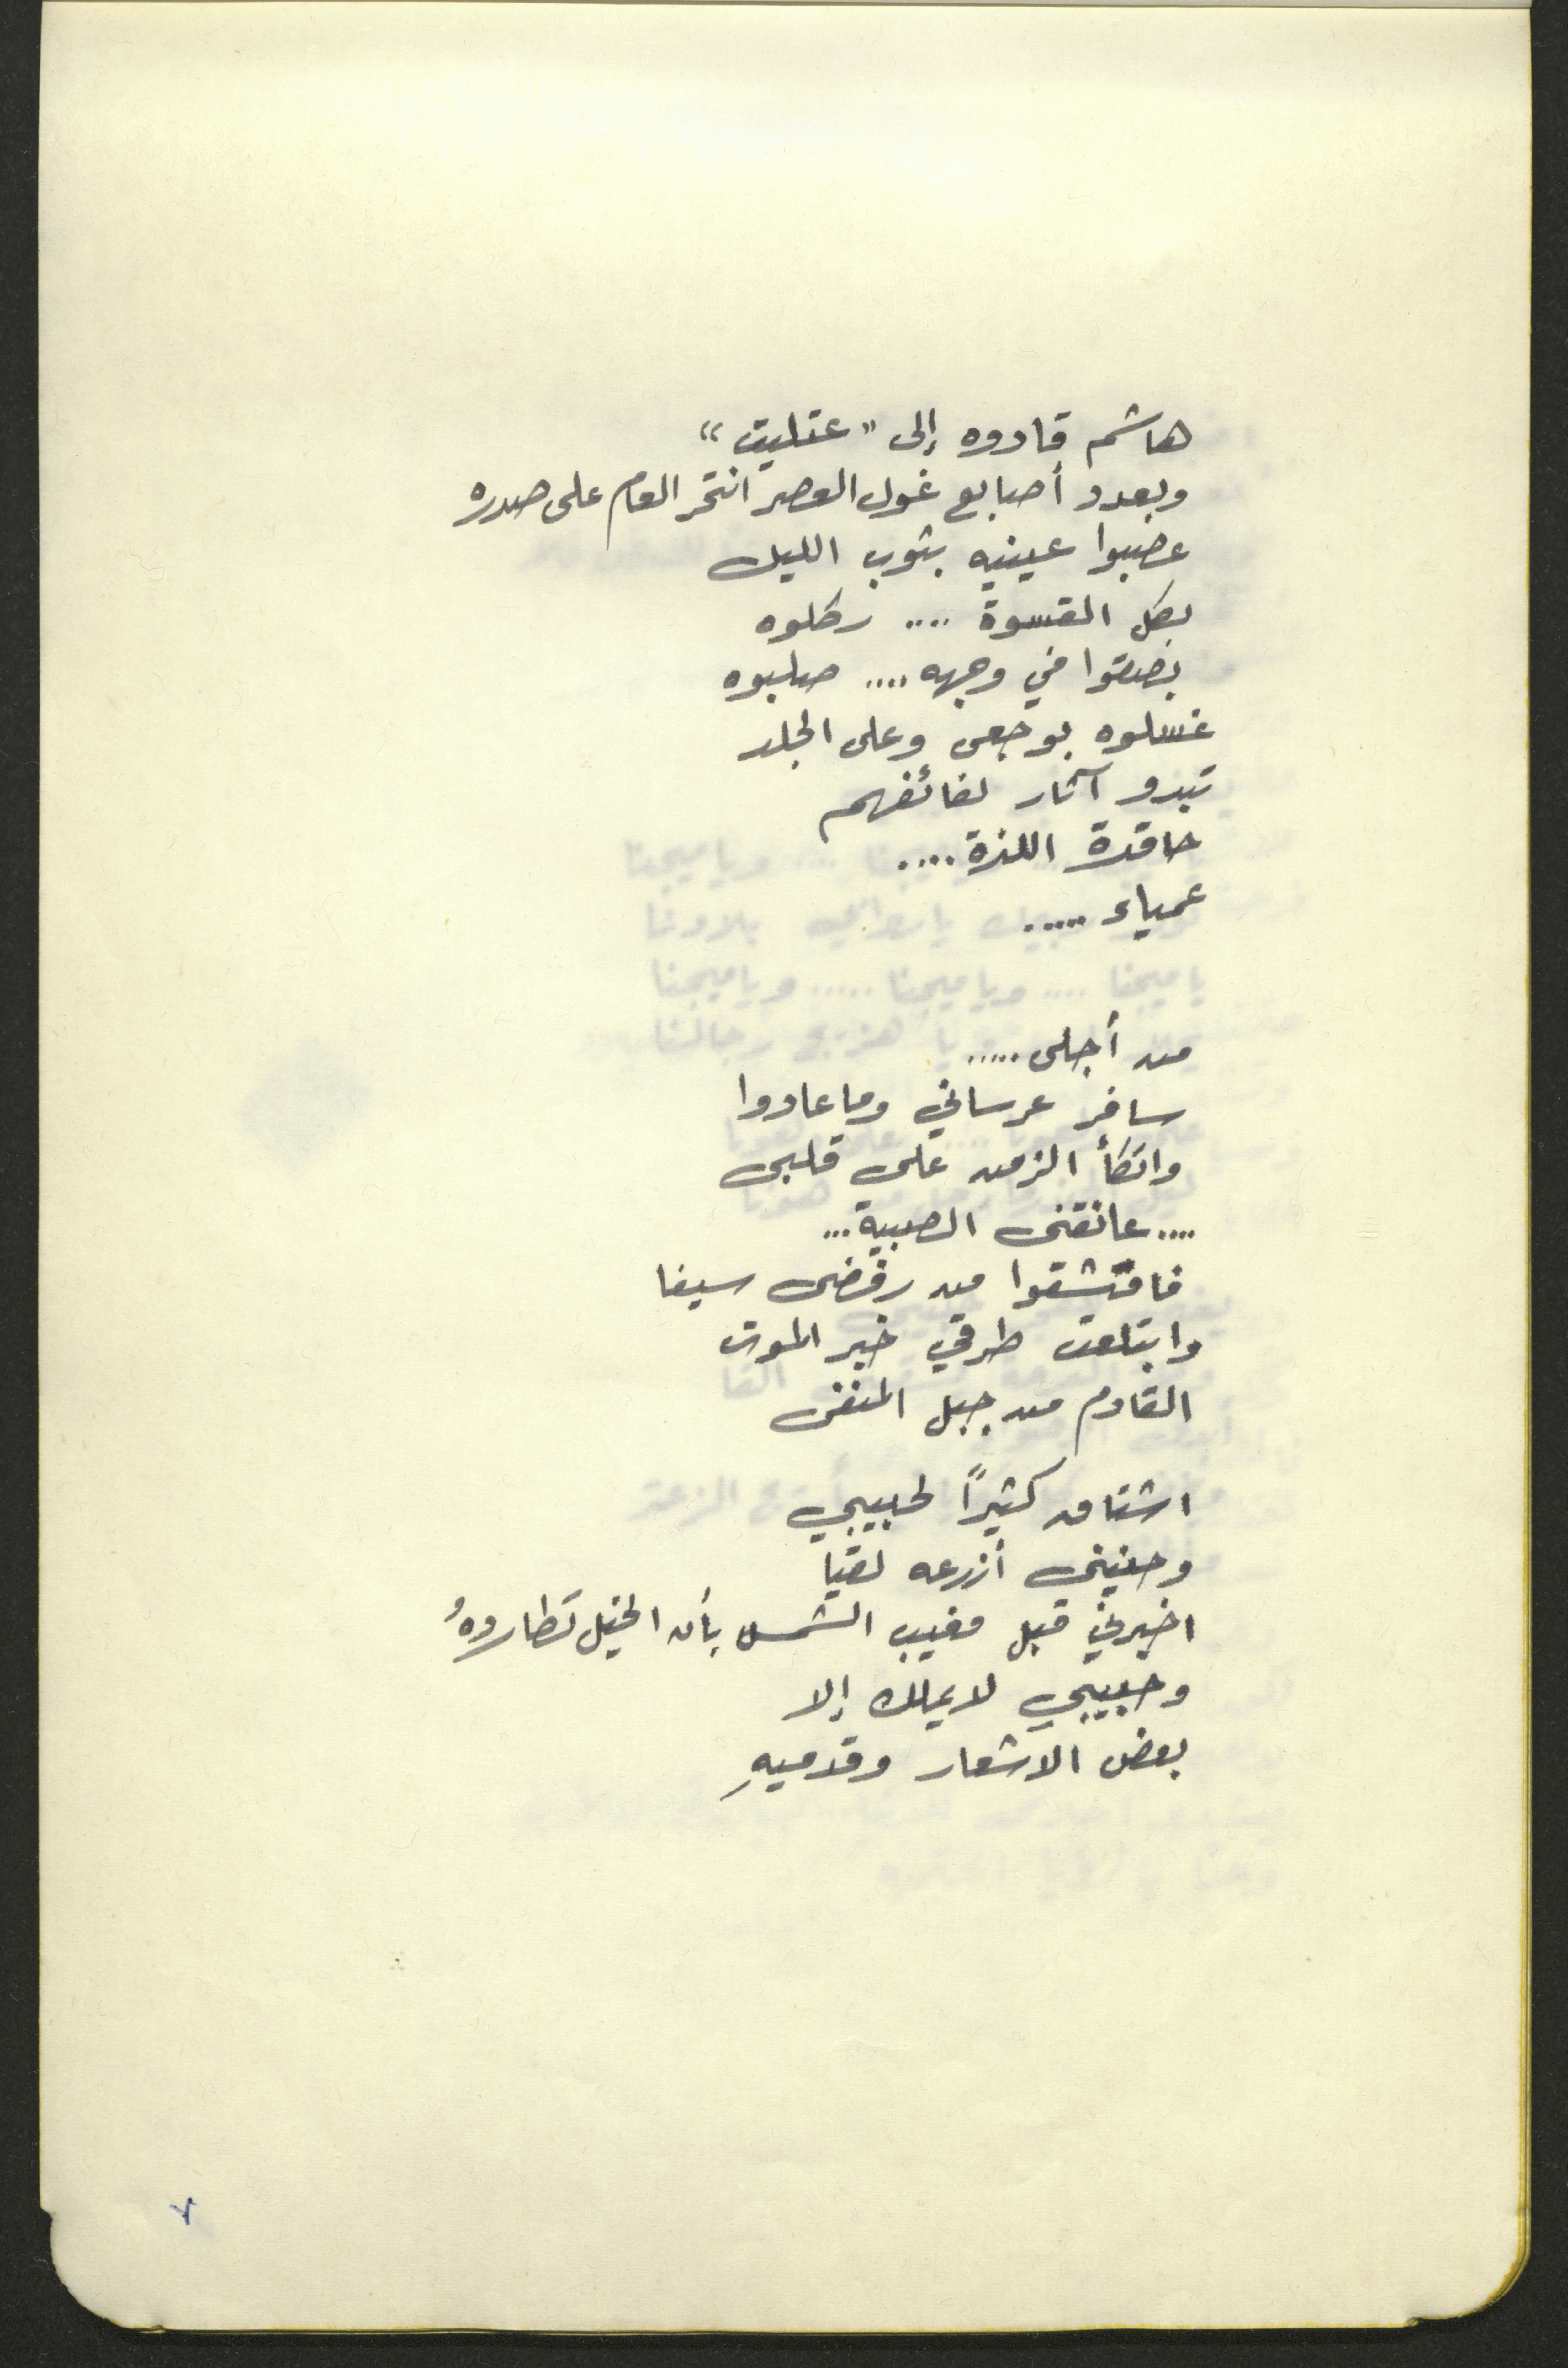 هاشم قادوه إلى "عتليت"
وبعدد أصابع غول العصر انتحر العام على صدره
عصبوا عينيه بثوب الليل
بكل القسوة .... ركلوه
بصقوا في وجهه .... صلبوه
غسلوه بوجعى وعلى الجلد
تبدو آثار لفائفهم
حاقدة اللذة .....
عمياء ......
من أجلى .....
سافر عرساني وما عادوا
واتكأ الزمن على قلبى
.... عانقنى الصبية ...
فامتشقوا من رفضى سيفا
وابتلعت طرقي خبر الموت
القادم من جبل المنفى
اشتاق كثيراً لحبيبي
وحنينى أزرعه لقيا
اخبرني قبل مغيب الشمس بأن الخيل تطاردهُ
وحبيبي لا يملك إلا
بعض الاشعار وقدميهِ
٧